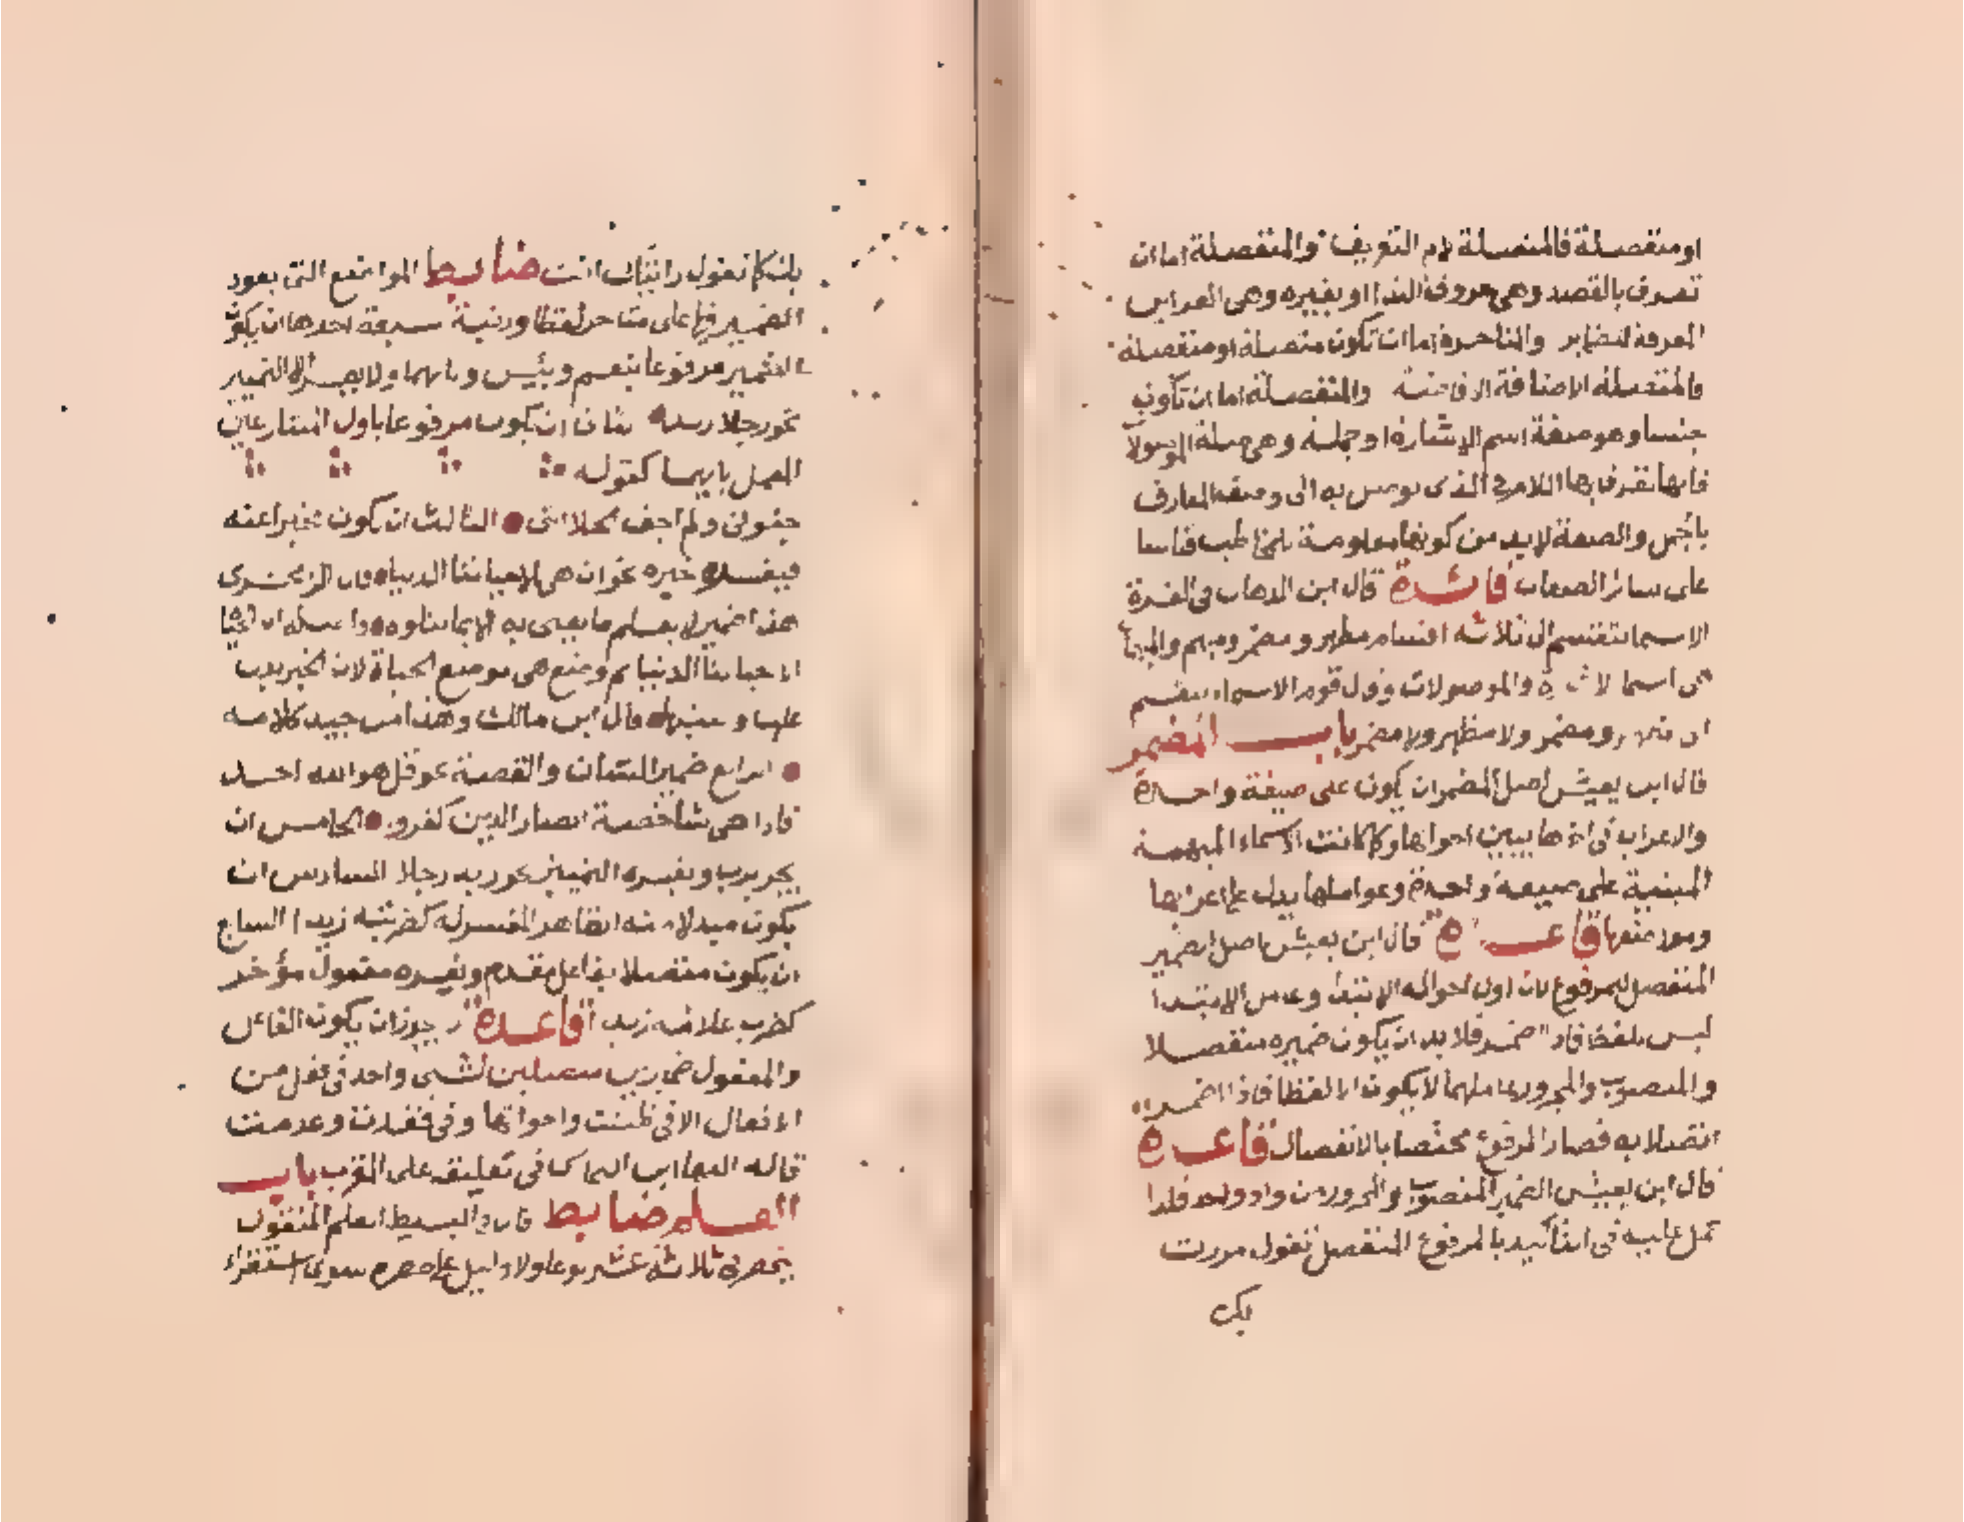 او منفصلة فالمتصلة لام التعريف والمنفصلة اما ان
تعرف بالقصد وهي حروف الندا او بغيره وهي
المعرفة والمتاخرة اما ان تكون متصلة او منفصلة
فالمتصلة الاضافة والمنفصلة اما ان تكون
جنسا وهو صفة اسم الاشارة او جملة وهي صلة الموصولا
المعارف
بالجمل والصفة لا بد من كونها معلومة للمخاطب
على سائر الصفات فائدة قال ابن الدهان في الغرة
الاسما تنقسم الى ثلاثة اقسام مظهر ومضمر ومبهم
اسما والموصولات وقال قوم الاسماء تنقسم
الى ومضمر ولا مظهر ولا مضمر باب المضمر
قال ابن يعيش اصل المضمر ان يكون على صيغة واحدة
والاعراب في يبين احوالها وكما كانت الاسماء المبهمة
المبنية على صيغة واحدة وعواملها يدل على اعرابها
قاعدة قال ابن يعيش اصل الضمير
المنفصل للمرفوع لان اول احواله الابتدا وعامل الابتدا
ليس بلفظ فاذا فلا بد ان يكون ضميره منفصلا
والمنصوب والمجرور عاملهما لا يكون الا لفظا فاذا
اتصلا به فصار المرفوع مختصا بالانفصال قاعدة
قال ابن يعيش الضمير المنصوب والمجرور من واد واحد فلذا
حمل عليه في التأكيد بالمرفوع المنفصل تقول مررت
بك
بك كما تقول رايتك انت ضابط المواضع التي يعود
الضمير فيها على متاخر لفظا ورتبة سبعة احدها ان يكون
الضمير مرفوعا بنعم وبئس وبابهما ولا يفسر الا التمييز
نحو رجلا زيد الثاني ان يكون مرفوعا باول المتنازعين
العمل بابهما كقوله
جفوني ولم اجف الاخلا الثالث ان يكون مخبرا عنه
فيفسره خبره نحو ان هي الا حياتنا الدنيا قال الزمخشري
هذا ضمير لا يعلم ما يعنى به الا بما يتلوه واصله
الا حياتنا الدنيا ثم وضع هي موضع الحياة لان الخبر يدل
عليها قال ابن مالك وهذا من جيد كلامه
الرابع ضمير الشان والقصة نحو قل هو الله احد
فاذا هي شاخصة ابصار الذين كفروا الخامس ان
يجر برب ويفسره التمييز نحو ربه رجلا السادس ان
يكون مبدلا منه الظاهر المفسر له كضربته زيدا السابع
ان يكون متصلا بفاعل مقدم ويفسره مفعول مؤخر
كضرب غلامه زيدا قاعدة لا يجوز ان يكون الفاعل
والمفعول ضميرين متصلين لشي واحد في فعل من
الافعال الا في ظننت واخواتها وفي فقدت وعدمت
قاله البها ابن النحاس في تعليقه على المقرب باب
العلم ضابط قال في البسيط العلم المنقول
ينحصر في ثلاثة عشر نوعا ولا دليل على حصره سوى استقراء